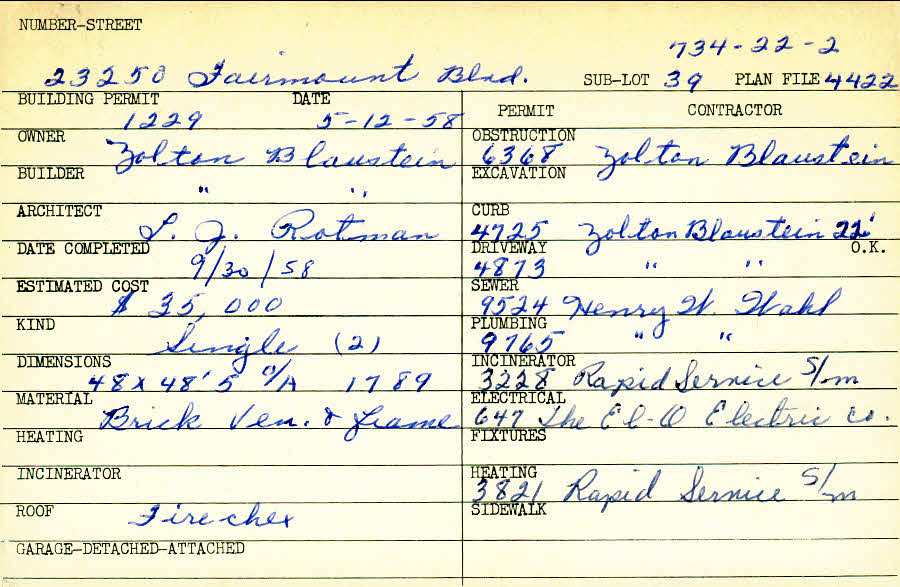 NUMBER-STREET
734-22-2
23250 Fairmount Blvd. SUB-LOT 39 PLAN FILE 4422
BUILDING PERMIT DATE
1229 5-12-58
OWNER
Zolton Blaustein
BUILDER
" "
ARCHITECT
L. J. Rotman
DATE COMPLETED
9/30/58
ESTIMATED COST
$ 35,000
KIND
Single (2)
DIMENSIONS
48 x 48'5 O/A 1789
MATERIAL
Brick Ven. & Frame
HEATING
INCINERATOR
ROOF
Fire-chex
GARAGE-DETACHED-ATTACHED
PERMIT CONTRACTOR
OBSTRUCTION
6368 Zolton Blaustein
EXCAVATION
CURB
4725 Zolton Blaustein 22'
DRIVEWAY O.K.
4873 " "
SEWER
9524 Henry W. Wahl
PLUMBING
9765 " "
INCINERATOR
3228 Rapid Service S/m
ELECTRICAL
647 The El-O Electric Co.
FIXTURES
HEATING
3821 Rapid Service S/m
SIDEWALK